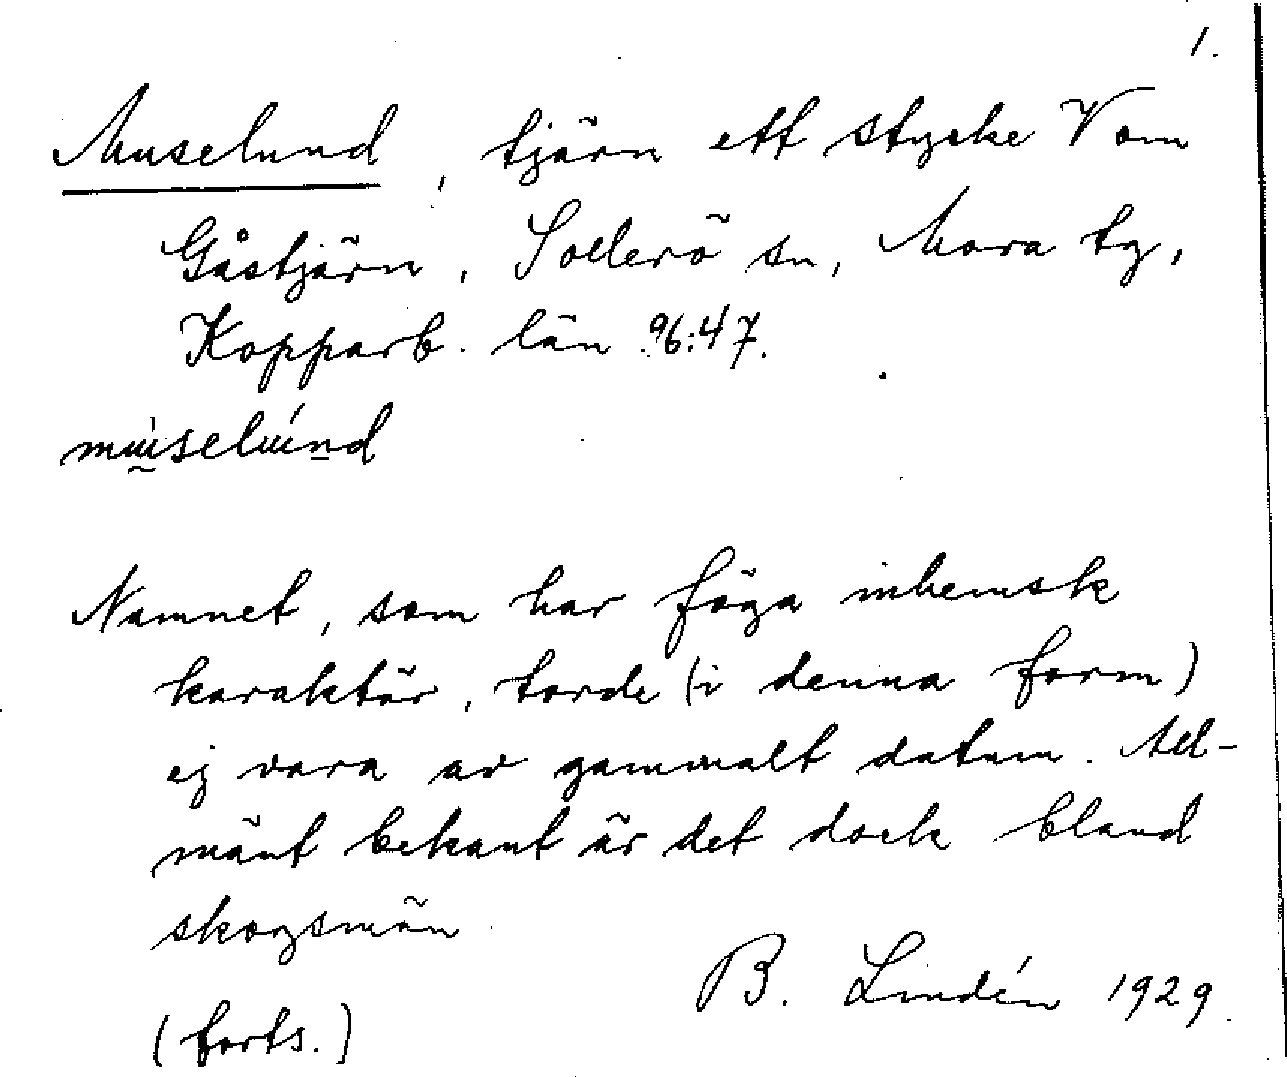 1.
Muselund, tjärn ett stycke V om
Gåstjärn, Sollerö sn, Mora tg,
Kopparb. län 96:47.
múselúnd
Namnet, som har föga inhemsk
karaktär, torde (i denna form)
ej vara av gammalt datum. All-
mänt bekant är det dock bland
skogsmän
B. Lindén 1929.
(forts.)